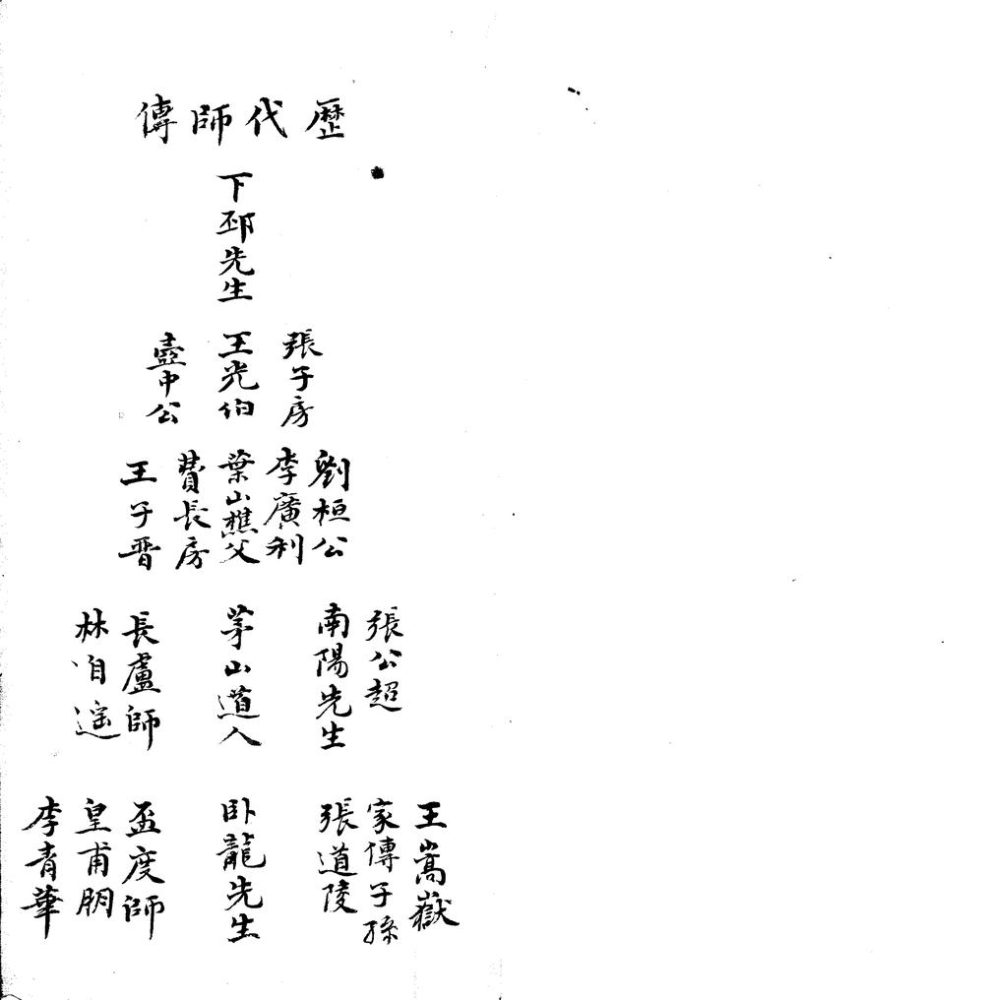 歷代師傳
下邳先生
張子房
王光伯
壺中公
劉桓公
李廣利
葉山樵父
費長房
王子晋
張公超
南陽先生
茅山道人
長盧師
林自遥
王嵩嶽
家傳子孫
張道陵
卧龍先生
盃度師
皇甫朋
李青華